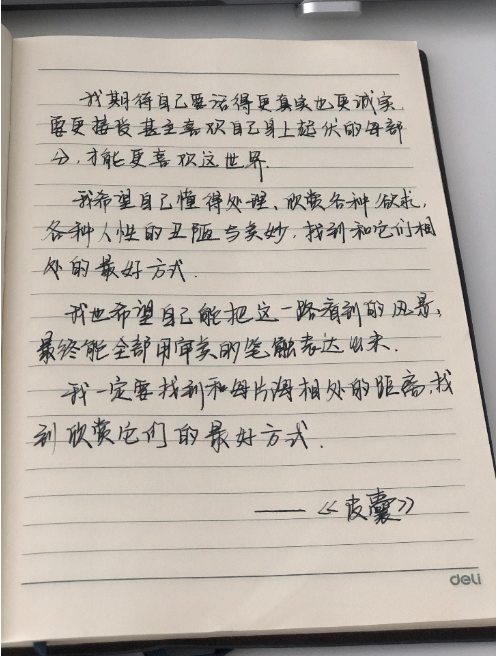 我期待自己要活得更真实也更诚实,
要更接受甚至喜欢自己身上起伏的每部
分,才能更喜欢这世界.
我希望自己懂得处理、欣赏各种欲求,
各种人性的丑陋与美妙,找到和它们相
处的最好方式.
我也希望自己能把这一路看到的风景,
最终能全部用审美的笔触表达出来.
我一定要找到和每片海相处的距离,找
到欣赏它们的最好方式.
——《皮囊》
deli